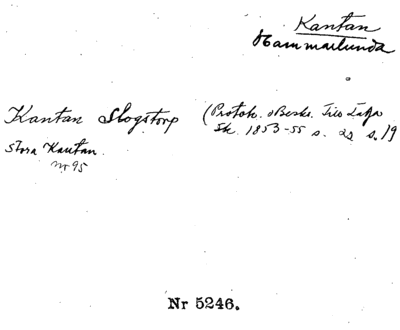 Kantan
Hammarlunda
Kantan Slogstorp (Protok. o Besks.
Sk. 1853-55 s. 22 s. 19
Stora Kantan.
nr 95
Nr 5246.